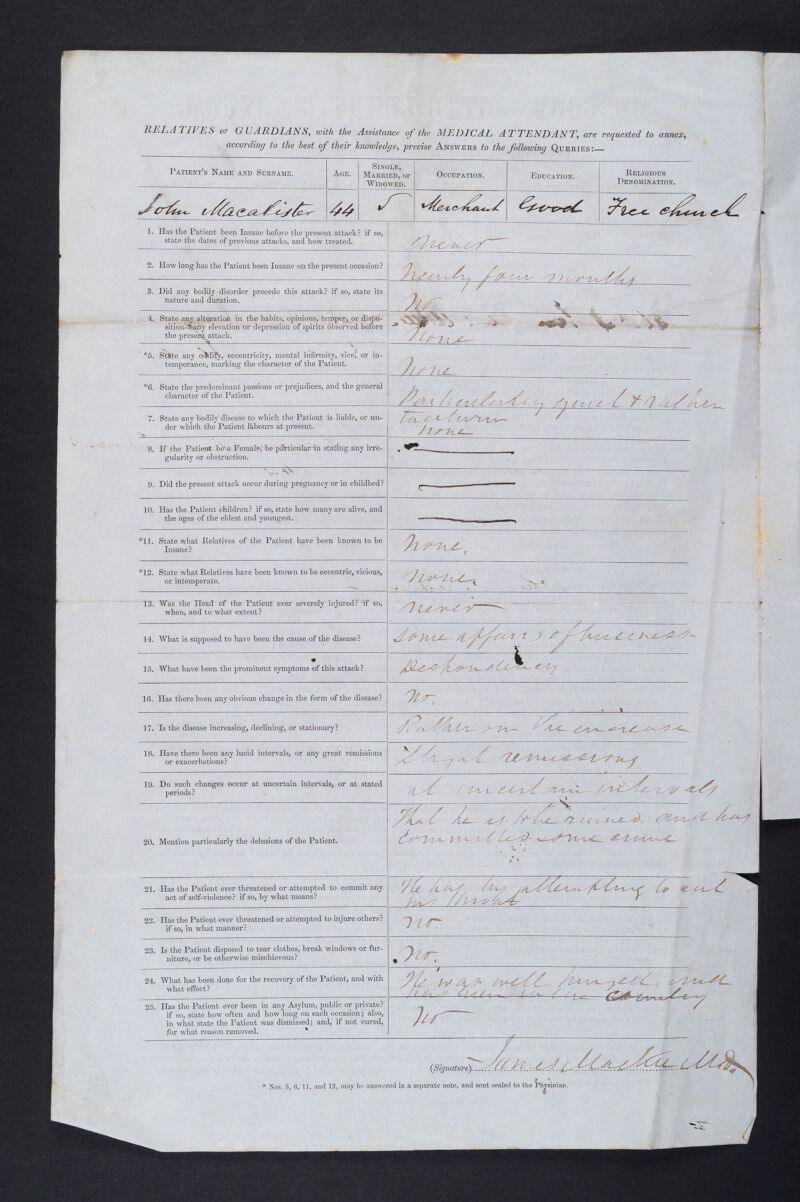 RELATIVES or GUARDIANS, with the Assistance of the MEDICAL ATTENDANT, are requested to annex,
according to the best of their knowledge, precise ANSWERS to the following QUERIES:—
PATIENT'S NAME AND SURNAME. AGE. SINGLE, MARRIED, OR WIDOWED. OCCUPATION. EDUCATION. RELIGIOUS DENOMINATION.
John Macalister 44 S Merchant Good Free church
1. Has the Patient been Insane before the present attack? if so,
state the dates of previous attacks, and how treated.
never
2. How long has the Patient been Insane on the present occasion?
Nearly four months
3. Did any bodily disorder precede this attack? if so, state its
nature and duration.
No
4. State any alteration in the habits, opinions, temper, or dispo-
sition—any elevation or depression of spirits observed before
the present attack.
None
*5. State any oddity, eccentricity, mental infirmity, vice, or in-
temperance, marking the character of the Patient.
None
*6. State the predominant passions or prejudices, and the general
character of the Patient.
Particularly quiet & rather
taciturn
7. State any bodily disease to which the Patient is liable, or un-
der which the Patient labours at present.
None
8. If the Patient be a Female, be particular in stating any irre-
gularity or obstruction.
9. Did the present attack occur during pregnancy or in childbed?
10. Has the Patient children? if so, state how many are alive, and
the ages of the eldest and youngest.
*11. State what Relatives of the Patient have been known to be
Insane?
None.
*12. State what Relatives have been known to be eccentric, vicious,
or intemperate.
None.
13. Was the Head of the Patient ever severely injured? if so,
when, and to what extent?
never
14. What is supposed to have been the cause of the disease?
Some affairs of business
15. What have been the prominent symptoms of this attack?
Despondency
16. Has there been any obvious change in the form of the disease?
No.
17. Is the disease increasing, declining, or stationary?
Rather on the increase
18. Have there been any lucid intervals, or any great remissions
or exacerbations?
remissions
19. Do such changes occur at uncertain intervals, or at stated
periods?
at uncertain intervals
20. Mention particularly the delusions of the Patient.
That he is to be ruined, and has
committed some crime
21. Has the Patient ever threatened or attempted to commit any
act of self-violence? if so, by what means?
He has by attempting to cut
his throat
22. Has the Patient ever threatened or attempted to injure others?
if so, in what manner?
No
23. Is the Patient disposed to tear clothes, break windows or fur-
niture, or be otherwise mischievous?
No.
24. What has been done for the recovery of the Patient, and with
what effect?
He was well purged, and
has been in the country
25. Has the Patient ever been in any Asylum, public or private?
if so, state how often and how long on each occasion; also,
in what state the Patient was dismissed; and, if not cured,
for what reason removed.
No
(Signature) James M.D.
* Nos. 5, 6, 11, and 12, may be answered in a separate note, and sent sealed to the Physician.